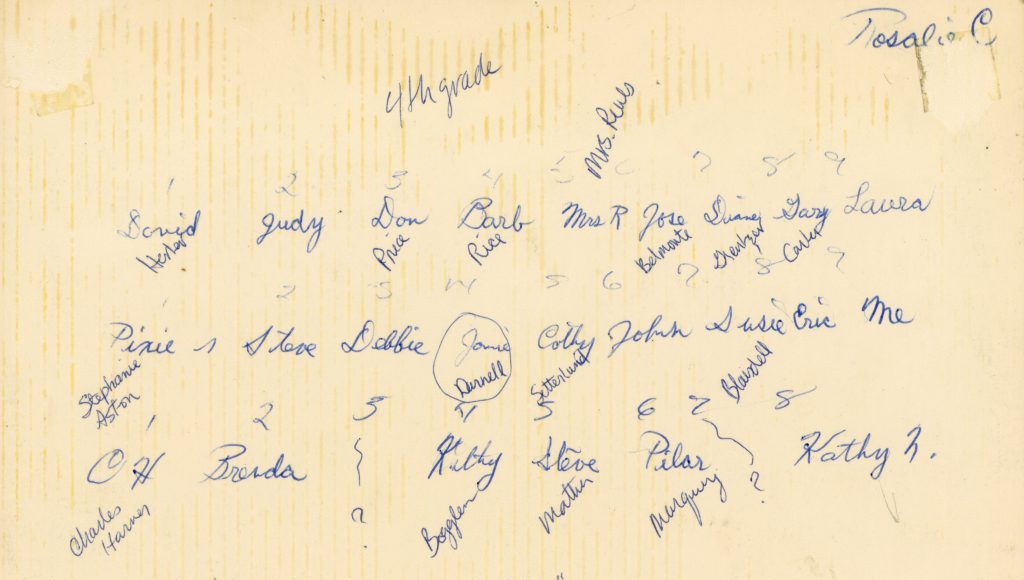 Rosalie C
4th grade
Mrs.
1 2 3 4 5 6 7 8 9
David Judy Don Barb Mrs R Jose Diane Gary Laura
Price Rice Belmonte Carter
1 2 3 4 5 6 7 8 9
Pixie Steve Debbie Jamie Cathy John Susie Eric Me
Stephanie Aston Darnell Setterlund Blaisdell
1 2 3 4 5 6 7 8
CH Brenda ? Kathy Steve Pilar ? Kathy N.
Charles Harner Mather